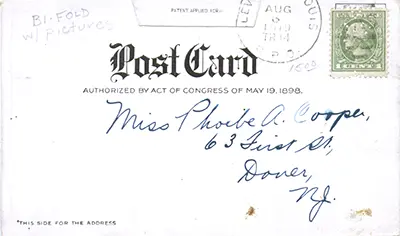 BI-FOLD
w/ pictures
PATENT APPLIED FOR
AUG
Post Card
AUTHORIZED BY ACT OF CONGRESS OF MAY 19, 1898.
Miss Phoebe A. Cooper,
63 First St,
Dover,
NJ.
*THIS SIDE FOR THE ADDRESS